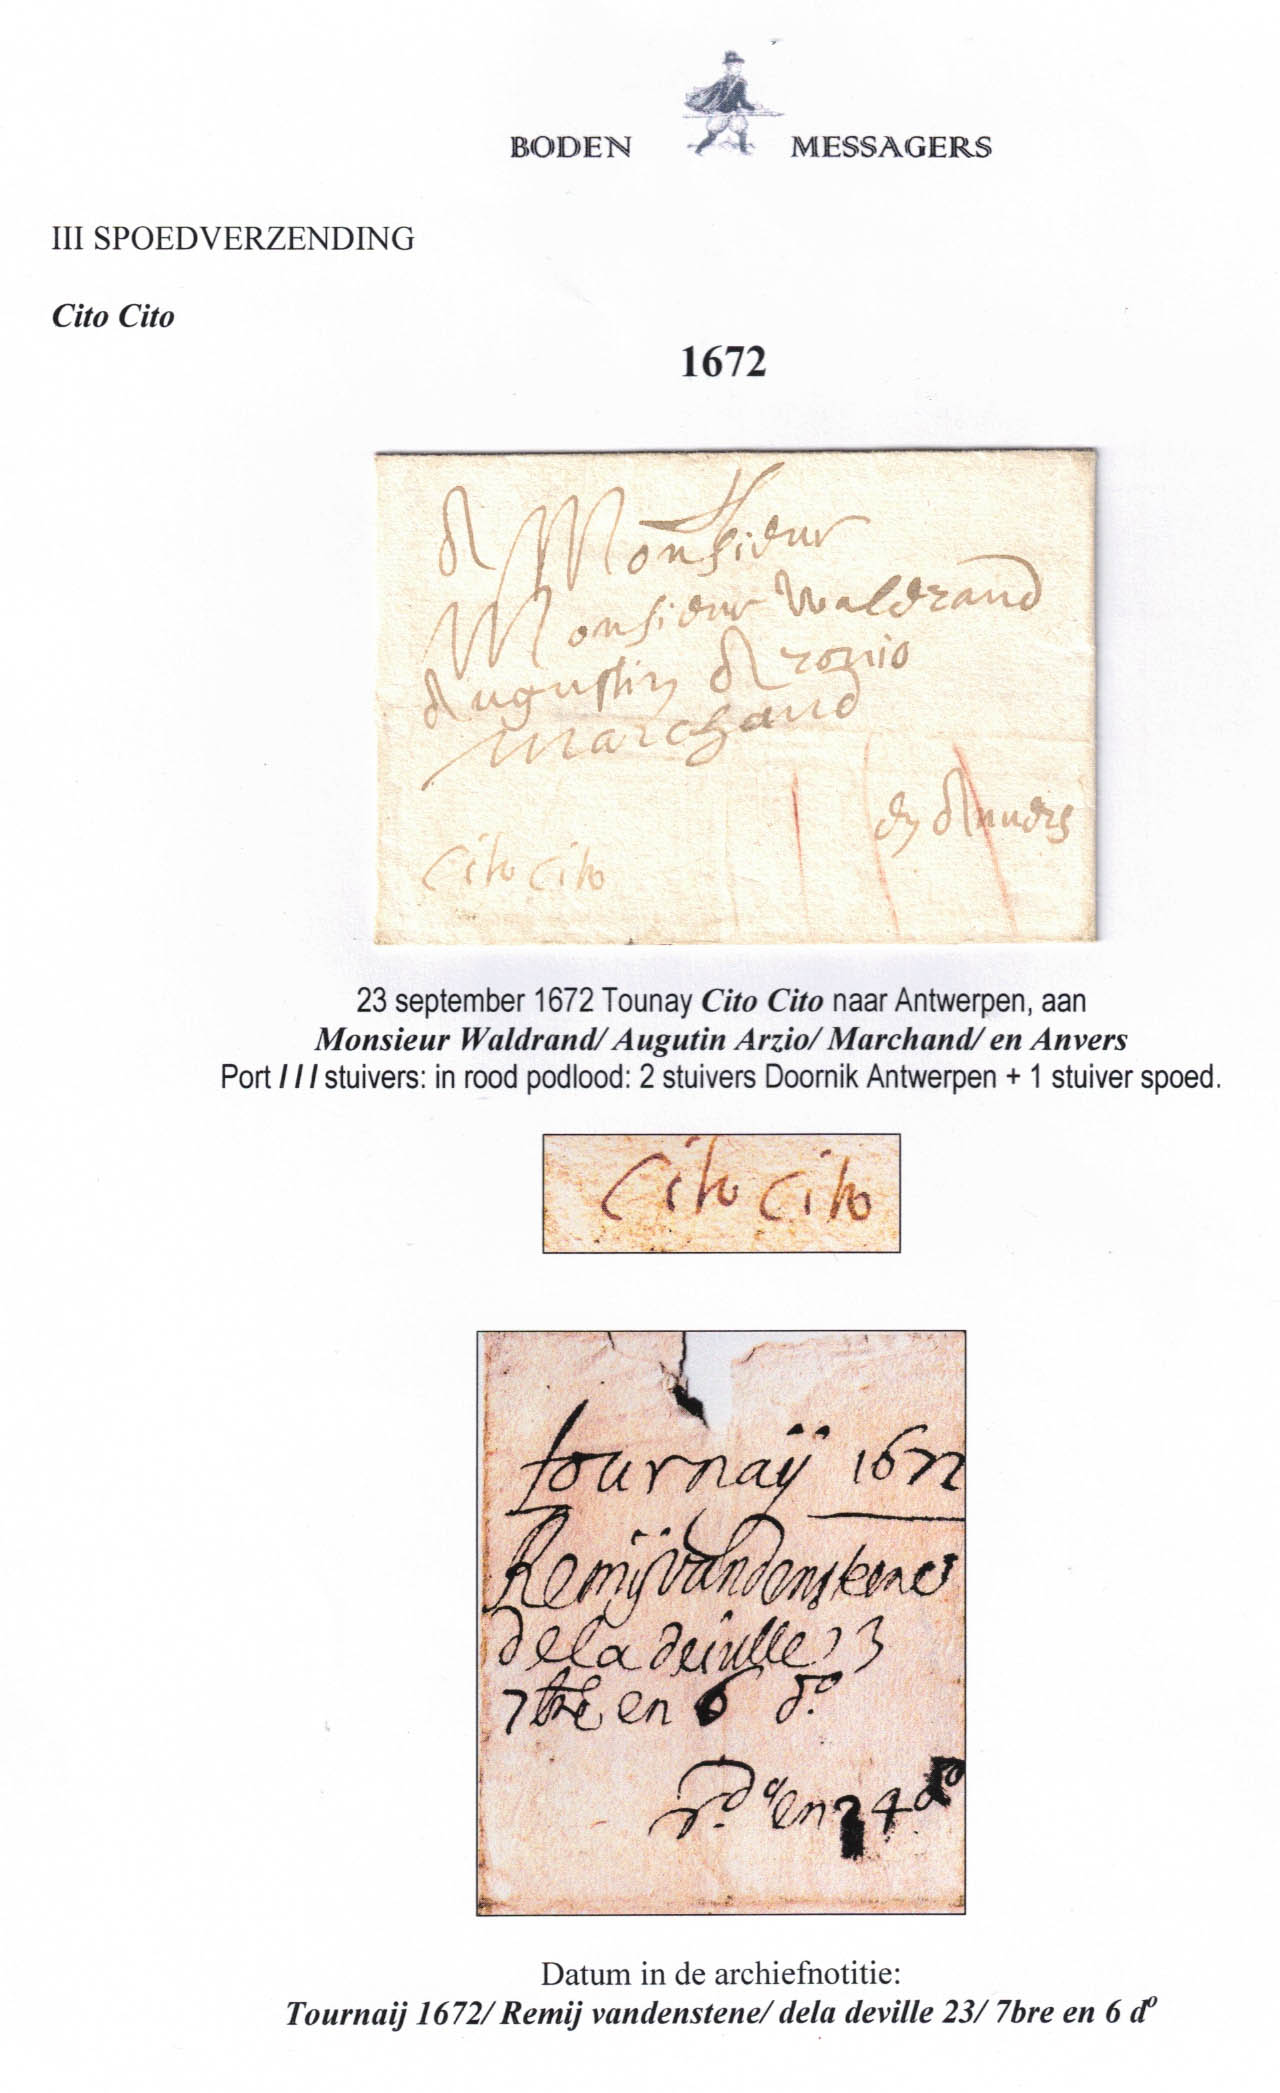 BODEN MESSAGERS
III SPOEDVERZENDING
Cito Cito
1672
A Monsieur
Monsieur Waldrand
Augustin
Marchand
en Anvers
Cito Cito
23 september 1672 Tounay Cito Cito naar Antwerpen, aan
Monsieur Waldrand/ Augutin Arzio/ Marchand/ en Anvers
Port / / / stuivers: in rood podlood: 2 stuivers Doornik Antwerpen + 1 stuiver spoed.
Cito Cito
tournaÿ 1672
Remÿ vandenstene
dela deville 23
7bre en 6 do
en 24 do
Datum in de archiefnotitie:
Tournaij 1672/ Remij vandenstene/ dela deville 23/ 7bre en 6 do